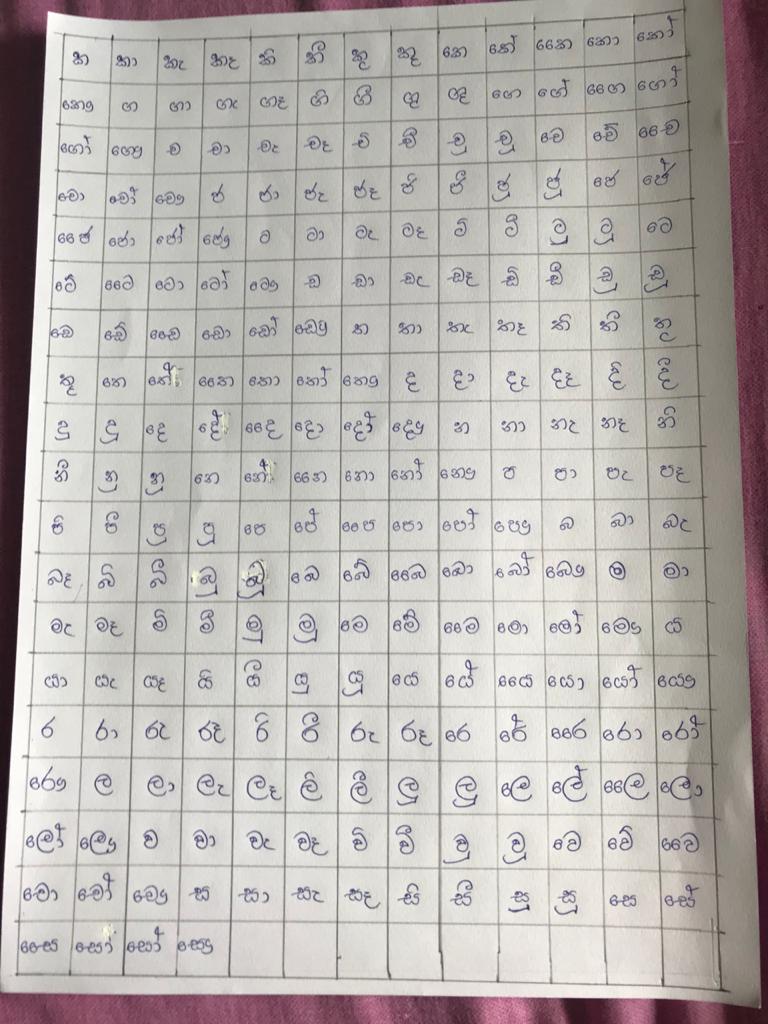 ක කා කැ කෑ කි කී කු කූ කෙ කේ කෛ කො කෝ
කෞ ග ගා ගැ ගෑ ගි ගී ගු ගූ ගෙ ගේ ගෛ ගෝ
ගෝ ගෞ ච චා චැ චෑ චි චී චු චූ චෙ චේ චෛ
චො චෝ චෞ ජ ජා ජැ ජෑ ජි ජී ජු ජූ ජෙ ජේ
ජෛ ජො ජෝ ජෞ ට ටා ටැ ටෑ ටි ටී ටු ටූ ටෙ
ටේ ටෛ ටො ටෝ ටෞ ඩ ඩා ඩැ ඩෑ ඩි ඩී ඩු ඩූ
ඩෙ ඩේ ඩෛ ඩො ඩෝ ඩෞ ත තා තැ තෑ ති තී තු
තූ තෙ තේ තෛ තො තෝ තෞ ද දා දැ දෑ දි දී
දු දූ දෙ දේ දෛ දො දෝ දෞ න නා නැ නෑ නි
නී නු නූ නෙ නේ නෛ නො නෝ නෞ ප පා පැ පෑ
පි පී පු පූ පෙ පේ පෛ පො පෝ පෞ බ බා බැ
බෑ බි බී බු බූ බෙ බේ බෛ බො බෝ බෞ ම මා
මැ මෑ මි මී මු මූ මෙ මේ මෛ මො මෝ මෞ ය
යා යැ යෑ යි යී යු යූ යෙ යේ යෛ යො යෝ යෞ
ර රා රැ රෑ රි රී රු රූ රෙ රේ රෛ රො රෝ
රෞ ල ලා ලැ ලෑ ලි ලී ලු ලූ ලෙ ලේ ලෛ ලො
ලෝ ලෞ ව වා වැ වෑ වි වී වු වූ වෙ වේ වෛ
වො වෝ වෞ ස සා සැ සෑ සි සී සු සූ සෙ සේ
සෛ සො සෝ සෞ